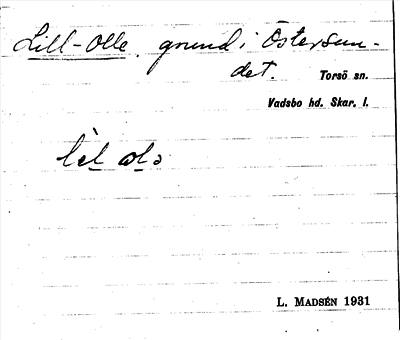 Lill-Olle, grund i Östersun-
det. Torsö sn.
Vadsbo hd. Skar. l.
L. MADSÉN 1931